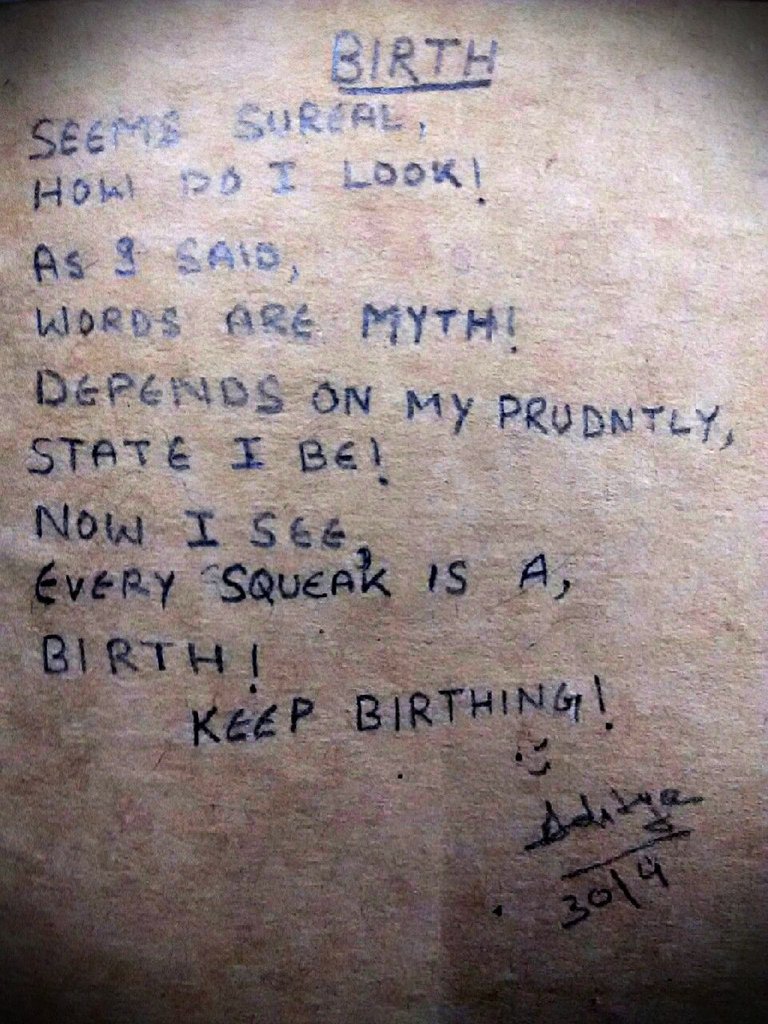 BIRTH
SEEMS SUREAL,
HOW DO I LOOK!
AS I SAID,
WORDS ARE MYTH!
DEPENDS ON MY PRUDNTLY,
STATE I BE!
NOW I SEE,
EVERY SQUEAK IS A,
BIRTH!
KEEP BIRTHING!
:)
Aditya
30/4